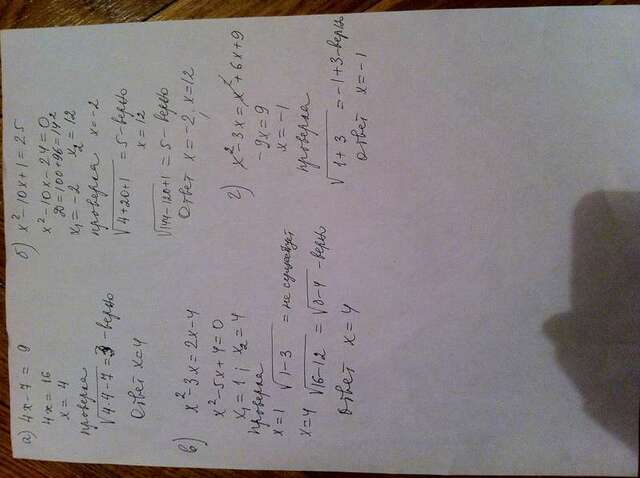 а) 4x-7 = 9
4x=16
x=4
проверка
√4·4-7=3 - верно
Ответ x=4
б) x²-10x+1=25
x²-10x-24=0
D=100+96=14²
x₁=-2 x₂=12
проверка x=-2
√4+20+1=5-верно
x=12
√144-120+1=5-верно
Ответ x=-2, x=12
в) x²-3x=2x-4
x²-5x+4=0
x₁=1; x₂=4
проверка
x=1 √1-3 = не существует
x=4 √16-12 = √8-4 -верно
Ответ x=4
г) x²-3x=x²+6x+9
-9x=9
x=-1
проверка
√1+3 = -1+3-верно
Ответ x=-1